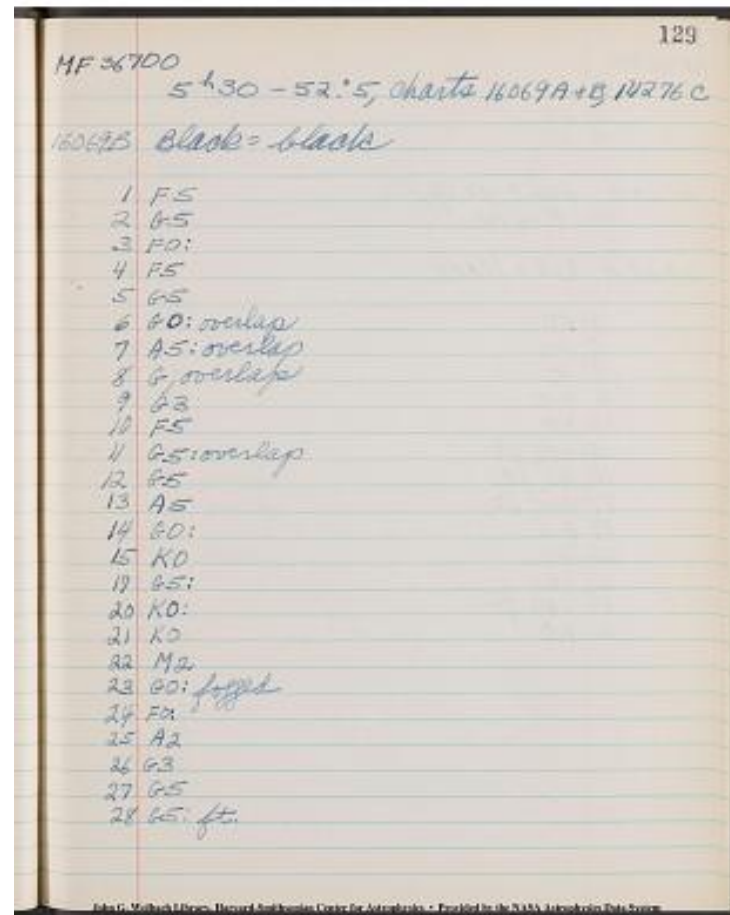 129
MF 36700
5h30 - 52.°5, charts 16069A+B, 14276C
16069B Black = black
1 F5
2 G5
3 F0:
4 F5
5 G5
6 G0: overlap
7 A5: overlap
8 G, overlap
9 G3
10 F5
11 G5: overlap
12 G5
13 A5
14 G0:
15 K0
19 G5:
20 K0:
21 K0
22 M2
23 G0: fogged
24 F0:
25 A2
26 G3
27 G5
28 G5: ft.
John G. Wolbach Library, Harvard-Smithsonian Center for Astrophysics • Provided by the NASA Astrophysics Data System